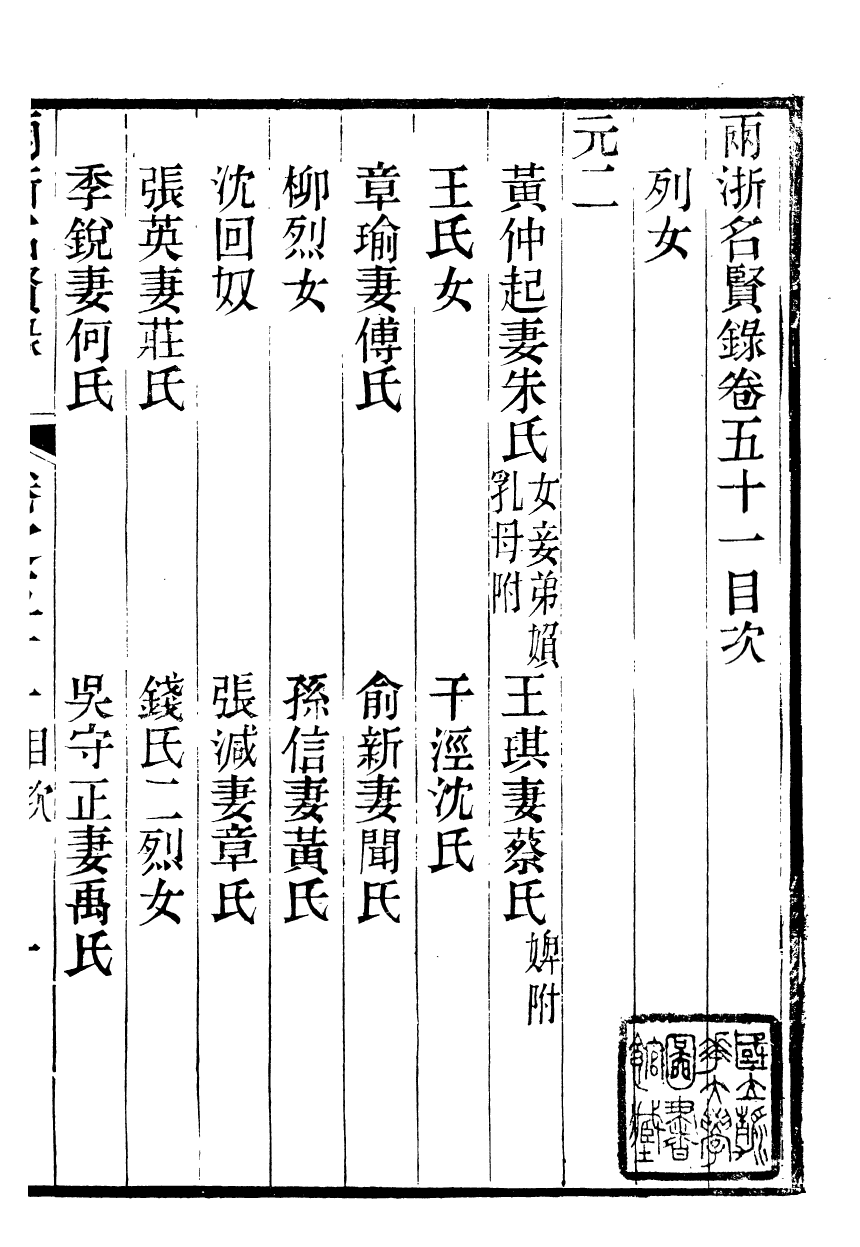 兩浙名賢錄卷五十一目次
列女
元二
黃仲起妻朱氏女妾弟媍乳母附　王琪妻蔡氏婢附
王氏女　干涇沈氏
章瑜妻傅氏　俞新妻聞氏
柳烈女　孫信妻黃氏
沈回奴　張減妻章氏
張英妻莊氏　錢氏二烈女
季銳妻何氏　吳守正妻禹氏
兩浙名賢錄　目次　一
國立清華大學圖書館藏